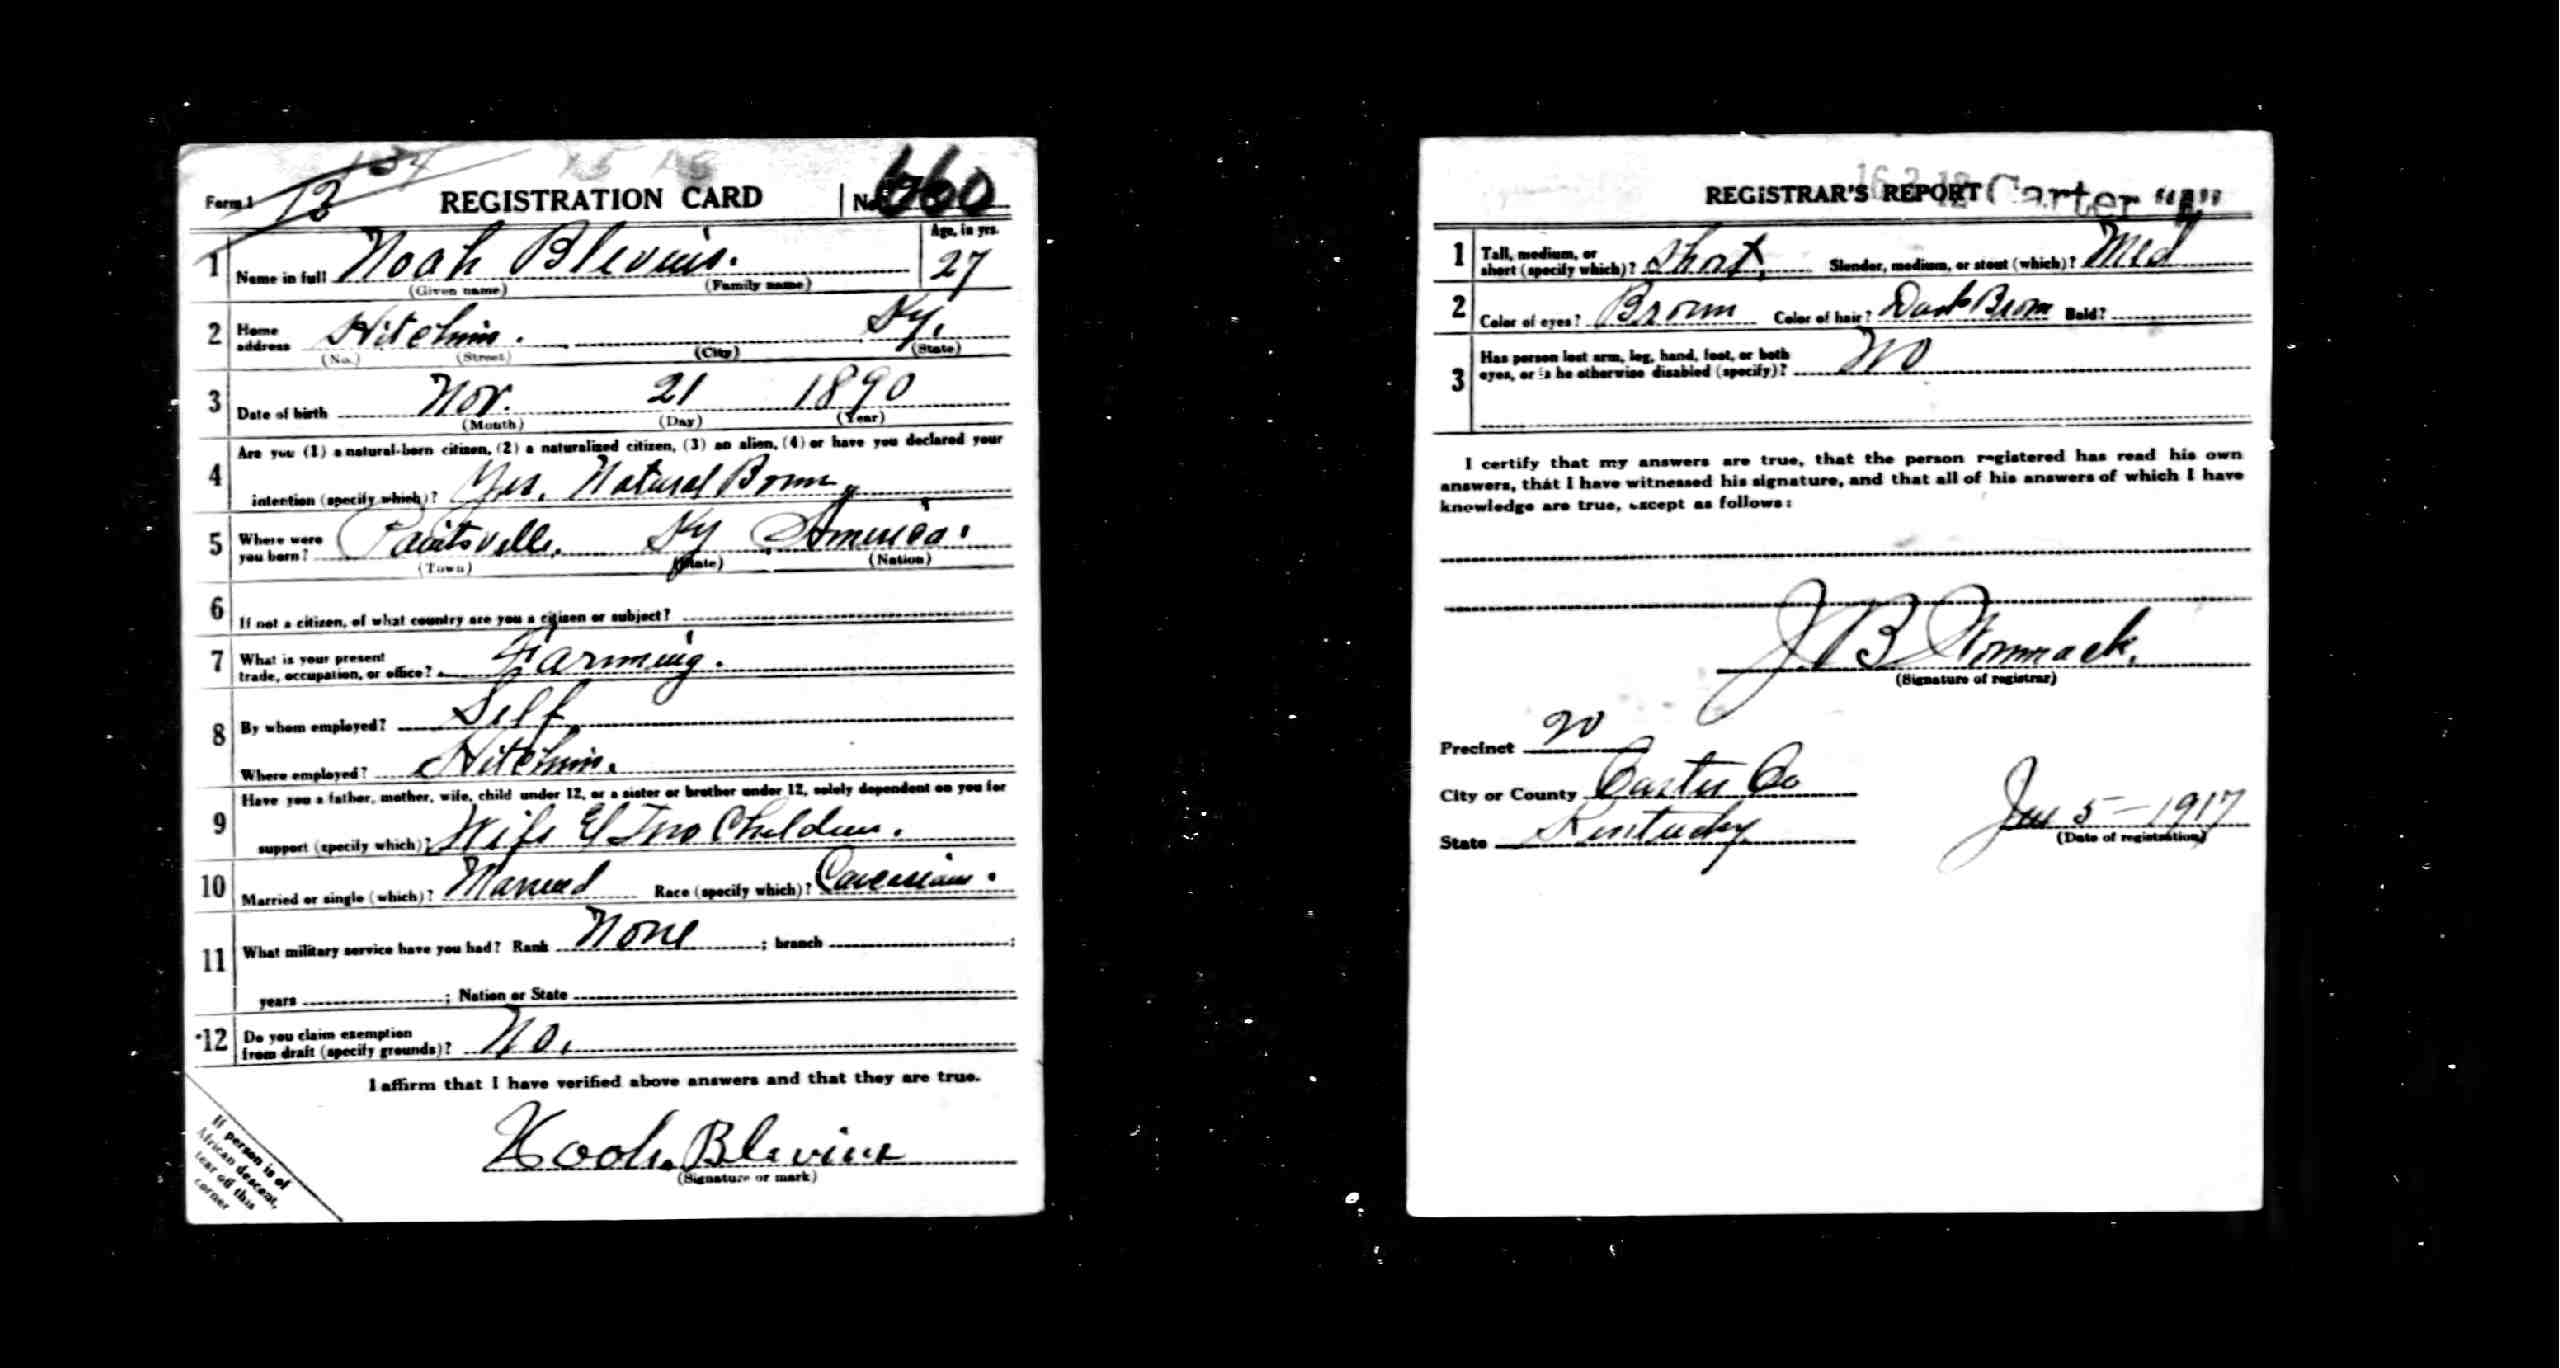 Form 1 13 REGISTRATION CARD No. 660
1 Name in full Noah Blevins. Age, in yrs. 27
(Given name) (Family name)
2 Home address Hitchins. Ky.
(No.) (Street) (City) (State)
3 Date of birth Nov. 21 1890
(Month) (Day) (Year)
4 Are you (1) a natural-born citizen, (2) a naturalized citizen, (3) an alien, (4) or have you declared your
intention (specify which)? Yes. Natural Born.
5 Where were you born? Paintsville, Ky America.
(Town) (State) (Nation)
6 If not a citizen, of what country are you a citizen or subject?
7 What is your present
trade, occupation, or office? Farming.
8 By whom employed? Self
Where employed? Hitchins.
9 Have you a father, mother, wife, child under 12, or a sister or brother under 12, solely dependent on you for
support (specify which)? Wife & Two Children.
10 Married or single (which)? Married Race (specify which)? Caucasian.
11 What military service have you had? Rank None ; branch ;
years ; Nation or State
12 Do you claim exemption
from draft (specify grounds)? No.
I affirm that I have verified above answers and that they are true.
Noah Blevins
(Signature or mark)
If person is of
African descent,
tear off this
corner
REGISTRAR'S REPORT Carter
1 Tall, medium, or
short (specify which)? Short Slender, medium, or stout (which)? Med
2 Color of eyes? Brown Color of hair? Dark Brown Bald?
3 Has person lost arm, leg, hand, foot, or both
eyes, or is he otherwise disabled (specify)? No
I certify that my answers are true, that the person registered has read his own
answers, that I have witnessed his signature, and that all of his answers of which I have
knowledge are true, except as follows:
J B Wommack.
(Signature of registrar)
Precinct 20
City or County Carter Co
State Kentucky Jun 5-1917
(Date of registration)